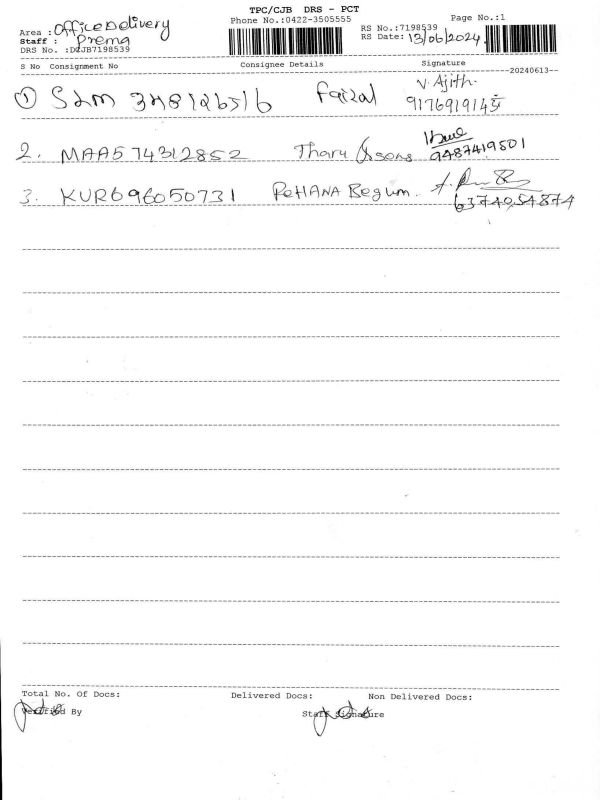 TPC/CJB DRS - PCT
Phone No.:0422-3505555
Page No.:1
Area : Office Delivery
RS No.:7198539
Staff : Prema
RS Date: 13/06/2024
DRS No. :DCJB7198539
S No Consignment No Consignee Details Signature
20240613
1 SLM 348126516 Faizal V. Ajith
917691914
2. MAA574312852 Tharu & sons
9487419501
3. KUR696050731 REHANA Begum
6374054874
Total No. Of Docs: Delivered Docs: Non Delivered Docs:
Verified By Staff Signature